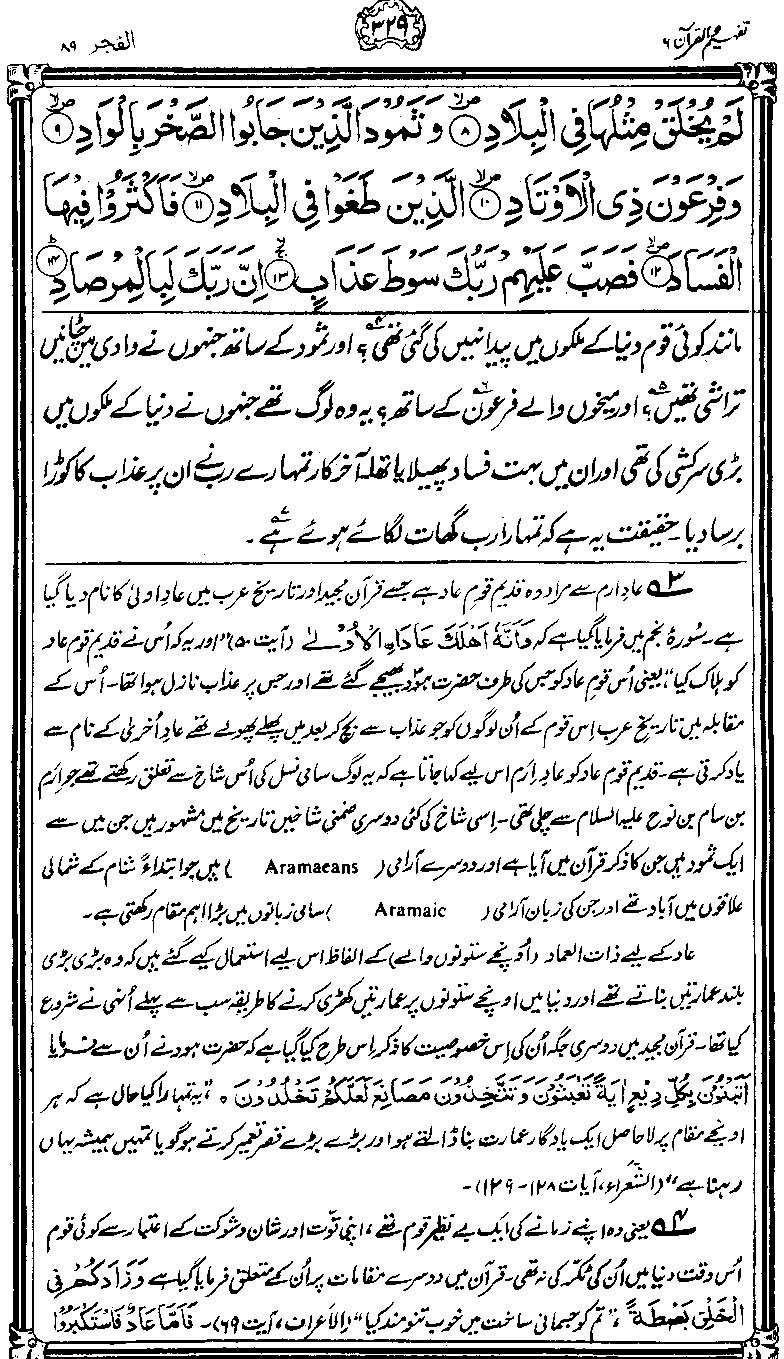 تفہیم القرآن ۶
۳۲۹
الفجر ۸۹
لَمْ يُخْلَقْ مِثْلُهَا فِي الْبِلَادِ ۸ وَثَمُودَ الَّذِينَ جَابُوا الصَّخْرَ بِالْوَادِ ۹
وَفِرْعَوْنَ ذِي الْأَوْتَادِ ۱۰ الَّذِينَ طَغَوْا فِي الْبِلَادِ ۱۱ فَأَكْثَرُوا فِيهَا
الْفَسَادَ ۱۲ فَصَبَّ عَلَيْهِمْ رَبُّكَ سَوْطَ عَذَابٍ ۱۳ إِنَّ رَبَّكَ لَبِالْمِرْصَادِ ۱۴
مانند کوئی قوم دنیا کے ملکوں میں پیدا نہیں کی گئی تھی؟ ۴ اور ثمود کے ساتھ جنہوں نے وادی میں چٹانیں
تراشی تھیں؟ ۵ اور میخوں والے فرعون ۶ کے ساتھ؟ یہ وہ لوگ تھے جنہوں نے دنیا کے ملکوں میں
بڑی سرکشی کی تھی اور ان میں بہت فساد پھیلایا تھا۔ آخرکار تمہارے رب نے ان پر عذاب کا کوڑا
برسا دیا۔ حقیقت یہ ہے کہ تمہارا رب گھات لگائے ہوئے ہے ۷۔
۳ عادِ ارم سے مراد وہ قدیم قومِ عاد ہے جسے قرآن مجید اور تاریخِ عرب میں عادِ اولیٰ کا نام دیا گیا
ہے۔ سورۂ نجم میں فرمایا گیا ہے کہ وَاَنَّهٗ اَهْلَكَ عَادَاۨ الْاُوْلٰى (آیت ۵۰) "اور یہ کہ اُس نے قدیم قوم عاد
کو ہلاک کیا"، یعنی اُس قومِ عاد کو جس کی طرف حضرت ہودؑ بھیجے گئے تھے اور جس پر عذاب نازل ہوا تھا۔ اُس کے
مقابلہ میں تاریخِ عرب اِس قوم کے اُن لوگوں کو جو عذاب سے بچ کر بعد میں پھلے پھولے تھے عادِ اُخریٰ کے نام سے
یاد کرتی ہے۔ قدیم قوم عاد کو عادِ اِرَم اس لیے کہا جاتا ہے کہ یہ لوگ سامی نسل کی اُس شاخ سے تعلق رکھتے تھے جو ارَم
بن سام بن نوح علیہ السلام سے چلی تھی۔ اِسی شاخ کی کئی دوسری ضمنی شاخیں تاریخ میں مشہور ہیں جن میں سے
ایک ثمود ہیں جن کا ذکر قرآن میں آیا ہے اور دوسرے آرامی (Aramaeans) ہیں جو ابتداءً شام کے شمالی
علاقوں میں آباد تھے اور جن کی زبان آرامی (Aramaic) سامی زبانوں میں بڑا اہم مقام رکھتی ہے۔
عاد کے لیے ذات العماد (اُونچے ستونوں والے) کے الفاظ اس لیے استعمال کیے گئے ہیں کہ وہ بڑی بڑی
بلند عمارتیں بناتے تھے اور دنیا میں اونچے ستونوں پر عمارتیں کھڑی کرنے کا طریقہ سب سے پہلے اُنہی نے شروع
کیا تھا۔ قرآن مجید میں دوسری جگہ اُن کی اِس خصوصیت کا ذکر اِس طرح کیا گیا ہے کہ حضرت ہود نے اُن سے فرمایا
اَتَبْنُوْنَ بِكُلِّ رِيْعٍ اٰيَةً تَعْبَثُوْنَ وَتَتَّخِذُوْنَ مَصَانِعَ لَعَلَّكُمْ تَخْلُدُوْنَ ہ "یہ تمہارا کیا حال ہے کہ ہر
اونچے مقام پر لاحاصل ایک یادگار عمارت بنا ڈالتے ہو اور بڑے بڑے قصر تعمیر کرتے ہو گویا تمہیں ہمیشہ یہاں
رہنا ہے" (الشُّعراء، آیات ۱۲۸-۱۲۹)۔
۴ یعنی وہ اپنے زمانے کی ایک بے نظیر قوم تھے، اپنی قوّت اور شان و شوکت کے اعتبار سے کوئی قوم
اُس وقت دنیا میں اُن کی ٹکر کی نہ تھی۔ قرآن میں دوسرے مقامات پر اُن کے متعلق فرمایا گیا ہے وَزَادَكُمْ فِي
الْخَلْقِ بَصْطَةً، "تم کو جسمانی ساخت میں خوب تنومند کیا" (الاَعراف، آیت ۶۹)۔ فَاَمَّا عَادٌ فَاسْتَكْبَرُوْا